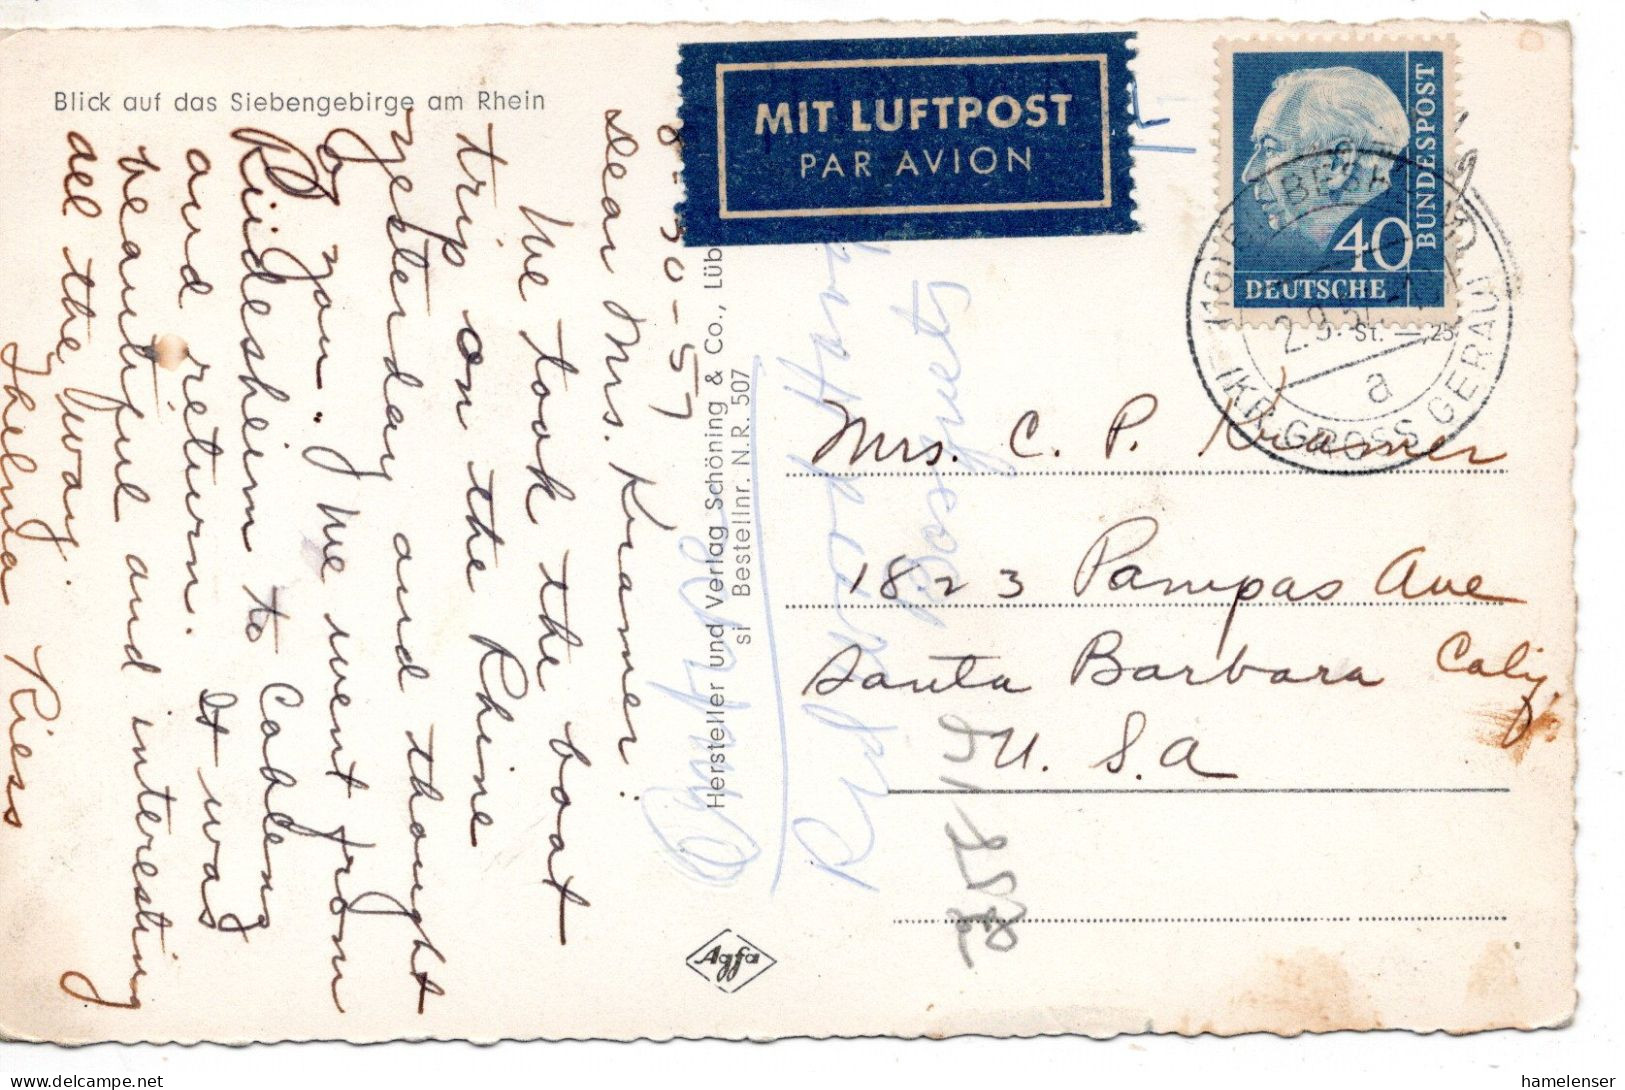 Blick auf das Siebengebirge am Rhein
8-30-57
Dear Mrs. Kramer:
We took the boat
trip on the Rhine
yesterday and thought
of you. We went from
Rüdesheim to Coblenz
and return. It was
beautiful and interesting
all the way.
Thelma Riess
Hersteller und Verlag Schöning & Co., Lüb
si Bestellnr. N.R. 507
Agfa
MIT LUFTPOST
PAR AVION
40
DEUTSCHE
BUNDESPOST
St. 25
a
GROSS GERAU
Mrs. C. P. Kramer
1823 Pampas Ave
Santa Barbara Calif.
U. S. A
hamelenser